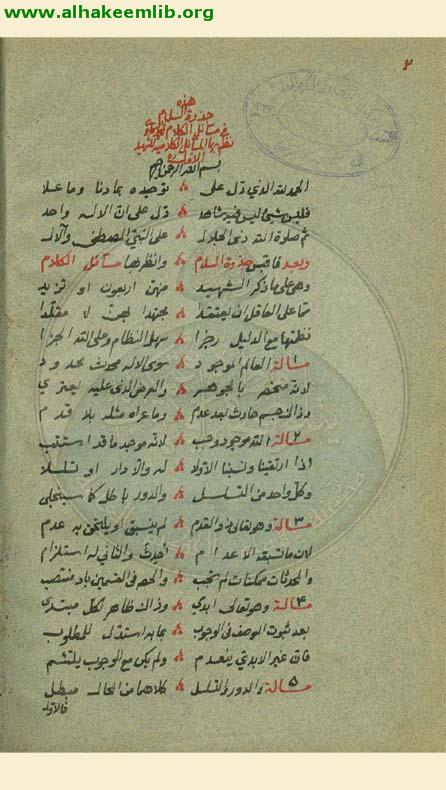 www.alhakeemlib.org
٢
هذه
جذوة السلام
في مسائل الكلام
نظم بها المسائل الكلامية للشهيد
الاول
بسم الله الرحمن الرحيم
الحمد لله الذي دل على توحيده بما دنا وما علا
فليس شيء ليس فيه شاهد دل على ان الاله واحد
ثم صلوة الله ذي الجلال على النبي المصطفى والآل
وبعد فاقبس جذوة السلام وانظر بها مسائل الكلام
وهي على ما ذكر الشهيد فهن اربعون او تزيد
مما على العاقل ان يعتقدا مجتهدا بحيث لا مقلدا
نظمتها مع الدليل رجزا سهل النظام وعلى الله الجزا
مسالة ١ العالم الموجود سوى الاله محدث محدود
لانه منحصر بالجوهر والعرض الذي عليه يعتري
وذاك جسم حادث بعد عدم وما عراه مثله بلا قدم
مسالة ٢ الله موجود وجب لانه موجد ما قد استتب
اذا ارتقينا ونسبنا الاولا له والا دار او تسلسلا
وكل واحد من التسلسل والدور باطل كما سينجلي
مسالة ٣ وهو تعالى ذو القدم لم ينسبق او يلتحق به عدم
لان ما تسبقه الاعدام أحدث والثاني له استلزام
والمحدثات ممكنات لم تجب والحصر في القسمين باد منتصب
مسالة ٤ وهو تعالى ابدي وذاك ظاهر لكل مبتدي
بعد ثبوت الوصف في الوجوب بما به استدل للمطلوب
فان غير الابدي ينعدم ولم يكن مع الوجوب يلتئم
مسالة ٥ والدور والتسلسل كلاهما من المحال مبطل
فالاول